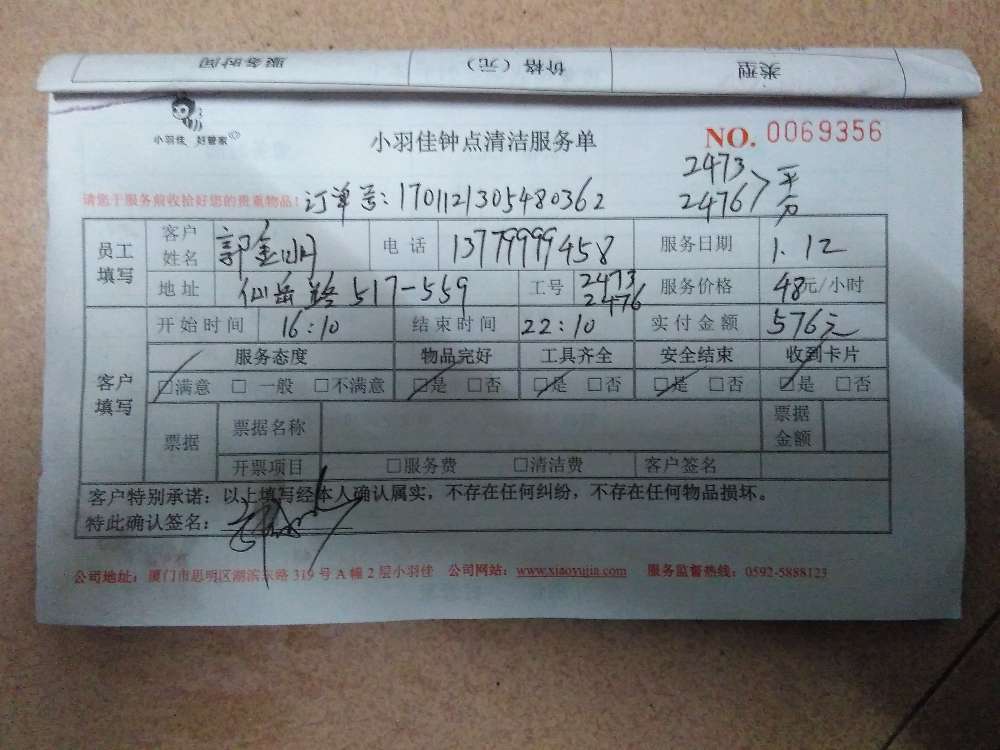 服务时间 价格（元） 类型
小羽佳 好管家
小羽佳钟点清洁服务单
NO. 0069356
2473
2476 平分
请您于服务前收拾好您的贵重物品！ 订单号：1701121305480362
员工填写 客户姓名 郭金明 电话 13779999458 服务日期 1.12
地址 仙岳路 517-559 工号 2473 2476 服务价格 48元/小时
客户填写 开始时间 16:10 结束时间 22:10 实付金额 576元
服务态度 物品完好 工具齐全 安全结束 收到卡片
□满意 □一般 □不满意 □是 □否 □是 □否 □是 □否 □是 □否
票据 票据名称 票据金额
开票项目 □服务费 □清洁费 客户签名
客户特别承诺：以上填写经本人确认属实，不存在任何纠纷，不存在任何物品损坏。
特此确认签名：
公司地址：厦门市思明区湖滨东路 319 号 A 幢 2 层小羽佳 公司网站：www.xiaoyujia.com 服务监督热线：0592-5888123